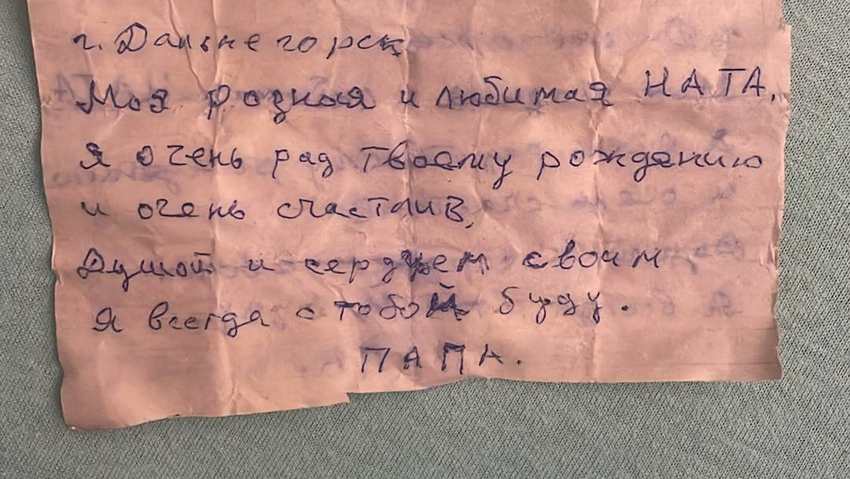 г. Дальнегорск
Моя родная и любимая НАТА.
Я очень рад твоему рождению
и очень счастлив,
Душой и сердцем своим
Я всегда с тобой буду.
ПАПА.